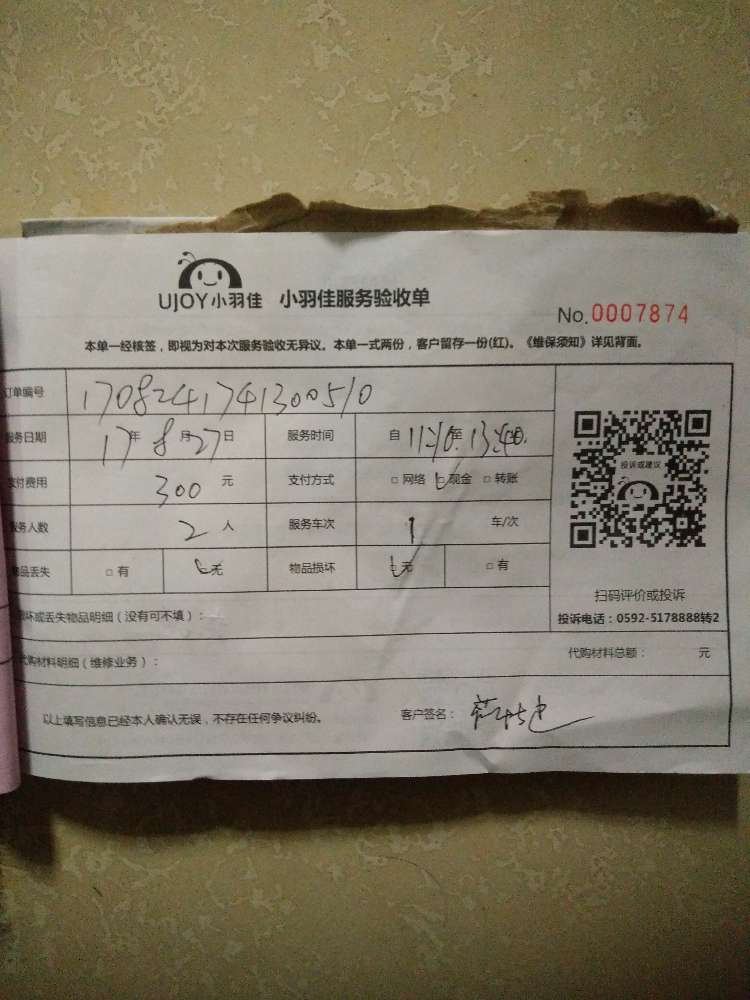 UJOY小羽佳 小羽佳服务验收单
No.0007874
本单一经核签，即视为对本次服务验收无异议。本单一式两份，客户留存一份(红)。《维保须知》详见背面。
订单编号 17082417413000510
服务日期 17年8月27日 服务时间 自11:10至13:40.
支付费用 300元 支付方式 □网络 □现金 □转账
服务人数 2人 服务车次 1 车/次
物品丢失 □有 □无 物品损坏 □无 □有
投诉或建议
扫码评价或投诉
投诉电话：0592-5178888转2
损坏或丢失物品明细（没有可不填）：
代购材料明细（维修业务）： 代购材料总额： 元
以上填写信息已经本人确认无误，不存在任何争议纠纷。 客户签名：